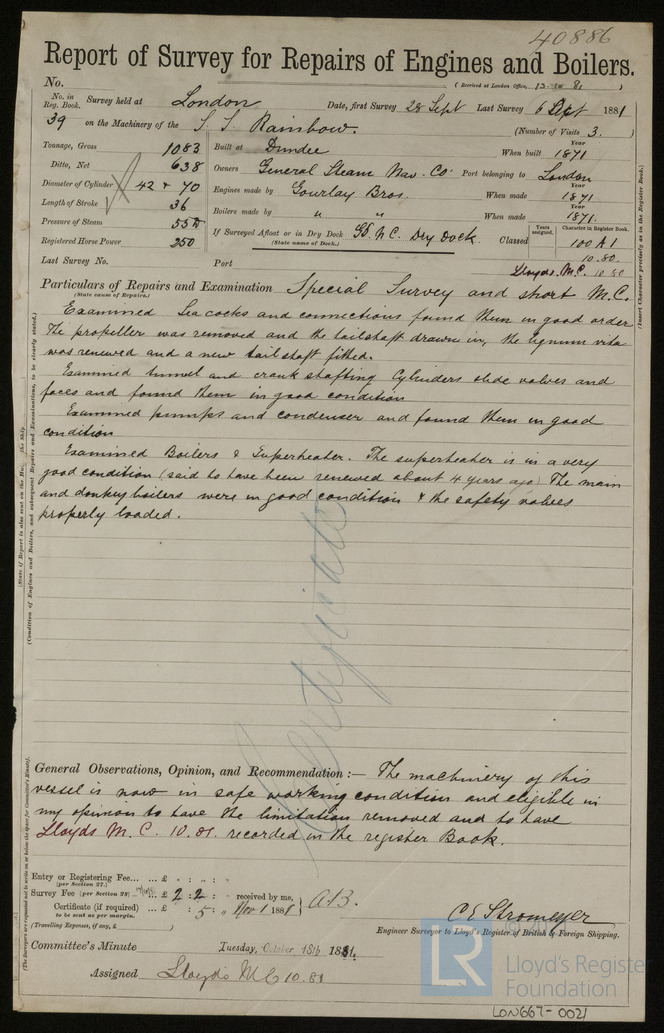 40886
Report of Survey for Repairs of Engines and Boilers.
No. (Received at London Office, 13-10 81)
No. in Reg. Book. Survey held at London Date, first Survey 28 Sept Last Survey 6 Sept 1881
39 on the Machinery of the S. S. Rainbow. (Number of Visits 3.)
Tonnage, Gross 1083 Built at Dundee When built Year 1871
Ditto, Net 638 Owners General Steam Nav. Co. Port belonging to London
Diameter of Cylinder 42 + 70 Engines made by Gourlay Bros. When made Year 1871
Length of Stroke 36 Boilers made by " " When made Year 1871.
Pressure of Steam 55 lb If Surveyed Afloat or in Dry Dock Gd. N C. Dry Dock. Classed Years assigned. Character in Register Book. 100 A 1
(State name of Dock.)
Registered Horse Power 250 10.80.
Last Survey No. Port Lloyds. M.C. 10 80
Particulars of Repairs and Examination Special Survey and short M.C.
(State cause of Repairs.)
Examined Sea cocks and connections found them in good order
The propeller was removed and the tailshaft drawn in, the lignum vitæ
was renewed and a new tail shaft fitted.
Examined tunnel and crank shafting Cylinders slide valves and
faces and found them in good condition
Examined pumps and condenser and found them in good
condition
Examined Boilers & Superheater. The superheater is in a very
good condition (said to have been renewed about 4 years ago) The main
and donkey boilers were in good condition & the safety valves
properly loaded.
Certificate
General Observations, Opinion, and Recommendation:— The machinery of this
vessel is now in safe working condition and eligible in
my opinion to have the limitation removed and to have
Lloyds M. C. 10.81. recorded in the register Book.
Entry or Registering Fee... ... £ : :
(per Section 27.)
Survey Fee (per Section 28) £ 2 : 2 : " received by me, A.B.
Certificate (if required) ... £ : 5 : " Nov 1 1881
to be sent as per margin.
(Travelling Expenses, if any, £ )
C E Stromeyer
Engineer Surveyor to Lloyd's Register of British & Foreign Shipping.
Committee's Minute Tuesday, October 18th 1881.
Assigned Lloyd's M C 10.81
(Insert Character precisely as in the Register Book.)
(State if Report is also sent on the Hull of the Ship.
(Condition of Engines and Boilers, and subsequent Repairs and Examinations, to be clearly stated.)
(The Surveyors are requested not to write on or below the Space for Committee's Minute).
LR
Lloyd's Register
Foundation
LON667-0021